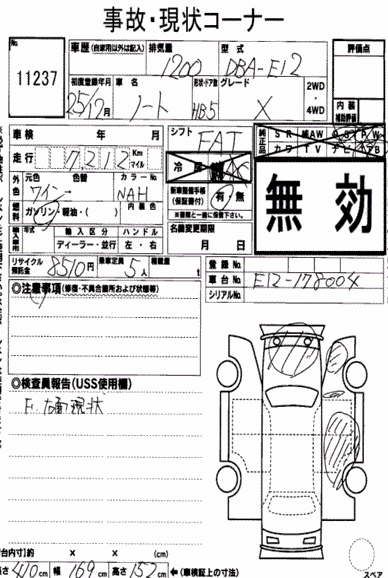 事故・現状コーナー
No.
11237
車歴(自家用以外は記入)
排気量
型式
評価点
1200
DBA-E12
初度登録年月
車名
形状・ドア数
グレード
2WD
・
4WD
25/12月
ノート
HB5
X
内装
補助評価
車検 年 月
シフト
FAT
純正品
SR
革AW
PW
カワ
TV
ナビ
走行
7212
Km
マイル
冷房
AC
無効
外色
元色
色替
カラーNo.
ワイン→
NAH
新車整備手帳
(保証書付)
有・無
※書類と一緒に保管下さい。
燃料
ガソリン・軽油・( )
内装色
名義変更期限
月 日
輸入車
年式
輸入区分
ハンドル
ディーラー・並行
左・右
リサイクル
預託金
8510円
乗車定員
5人
積載量
t
登録No.
車台No.
E12-178004
シリアルNo.
◎注意事項(修復・不具合箇所および状態等)
◎検査員報告(USS使用欄)
F.右面現状
台内寸)約 x x (cm)
長さ 410 cm 幅 169 cm 高さ 152 cm ←(車検証上の寸法)
スペア